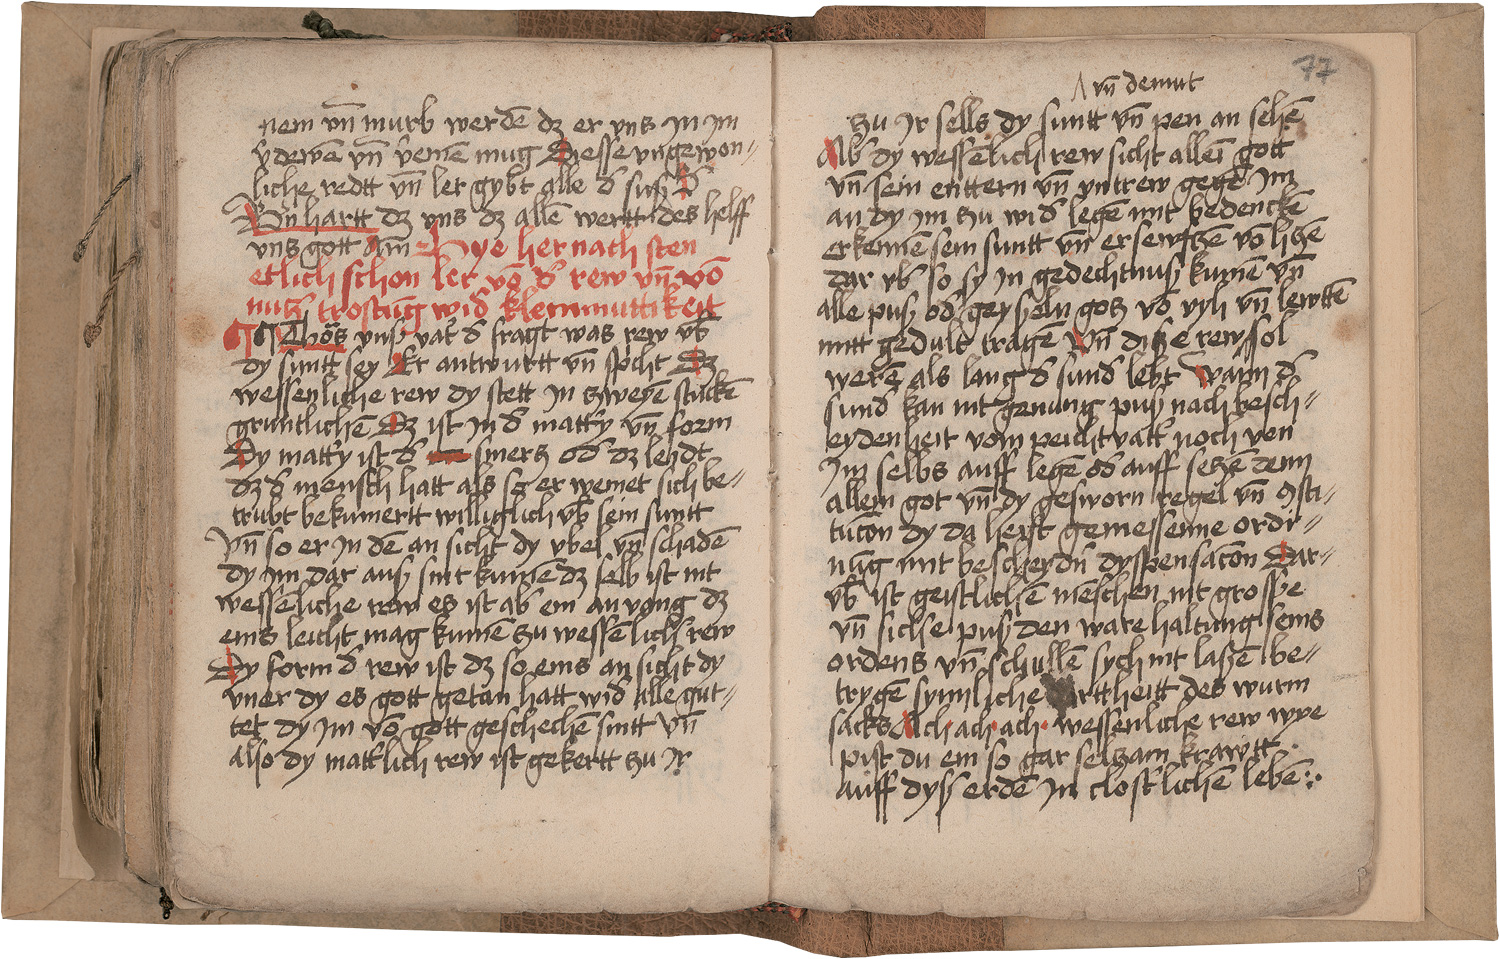 nem vn̄ murb werdē dz er vns in im
v̄dewē vn̄ v̄emē mug Diesse vngewon-
liche redtt vn̄ ler gybt alle d̄ suß s
Bn̄hartt dz vns dz allē wertt des helff
vns gott Am̄ Hye her nach sten
etlich schon ler vō d̄ rew vn̄ vō
nutz trostūg wid̄ kleinmuttikeit
Thōs vnß vat̄ d̄ fragt was rew vb̄
dy suntt sey Er antwurtt vn̄ spcht Dz
wessenliche rew dy stett in zweyē stuckē
gruntlichē Dz ist in d̄ matt̄y vn̄ form
Dy matt̄y ist d̄ smerz od̄ dz leydt
dz d̄ mensch hatt als so er weinet sich be-
trubt bekumertt williglich vb̄ sein suntt
vn̄ so er in dē an sicht dy vbel vn̄ schadē
dy im dar auß sint kumē dz selb ist nit
wessēliche rew es ist ab̄ ein anvong dz
eins leicht mag kumē zu wessēlich̄ rew
Dy form d̄ rew ist dz so eins an sicht dy
vner dy es gott getan hatt wid̄ alle gut-
tet dy im vō gott geschechē sintt vn̄
also dy matt̄lich rew ist gekertt zu ir
vn̄ demut
zu ir selbs dy suntt vn̄ pen an sehē
Ab̄ dy wessēlich rew sicht allei gott
vn̄ sein enttern vn̄ vntrew gegē im
an dy im zu wid̄ legē mit bedenckē
erkennē sein suntt vn̄ ersewfzē vō hzē
dar vb̄ so sy in gedechtnuß kumē vn̄
alle puß od̄ geyseln gotz vō vyh vn̄ lewttē
mitt gedult tragē Vn̄ diße rew sol
werē als lang d̄ sund̄ lebt Wann d̄
sund̄ kan nit genung puß nach besch-
eydenheit vom peichtvatt̄ noch von
im selbs auff legē od̄ auff seczē denn
allein got vn̄ dy gesworn regel vn̄ 9sti-
tucōn dy da heist gemessenne ordi-
nūg mit bescheydn̄ dyspensacōn Dar-
vb̄ ist geistlichē mēschen nit grosse
vn̄ sichse puß den ware haltung seins
ordens vn̄ schullē sych nit laßē be-
trygē synnliche zarttheitt des wurm
sacks Ach ach ach wessenliche rew wye
pist du ein so gar selzam krawtt
auff dyß erdē in clost̄lichē lebē
77